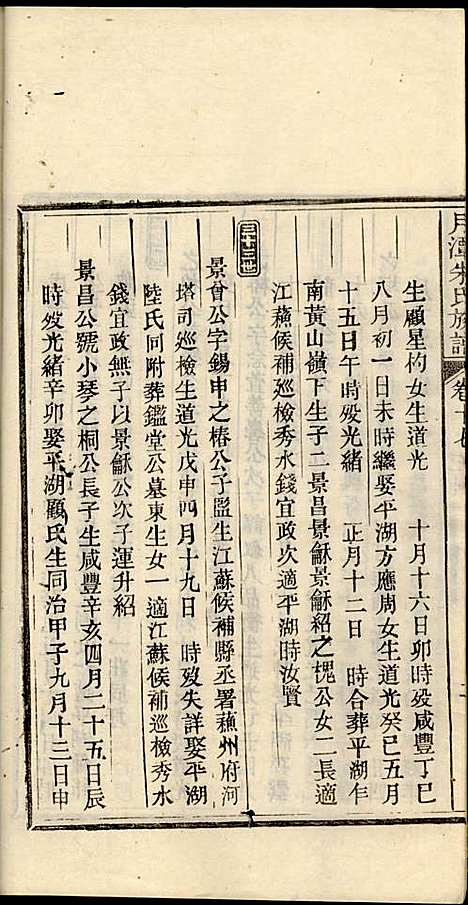 月潭朱氏族譜 卷十
生顧星杓女生道光 十月十六日卯時歿咸豐丁巳
八月初一日未時繼娶平湖方應周女生道光癸巳五月
十五日午時歿光緒 正月十二日 時合葬平湖乍
南黃山嶺下生子二景昌景龢景龢紹之槐公女二長適
江蘓候補廵檢秀水錢宜政次適平湖時汝賢
三十三世
景曾公字錫申之椿公子監生江蘇候補縣丞署蘓州府河
塔司廵檢生道光戊申四月十九日 時歿失詳娶平湖
陸氏同附葬鑑堂公墓東生女一適江蘇候補巡檢秀水
錢宜政無子以景龢公次子運升紹
景昌公號小琴之桐公長子生咸豐辛亥四月二十五日辰
時歿光緒辛卯娶平湖顧氏生同治甲子九月十三日申